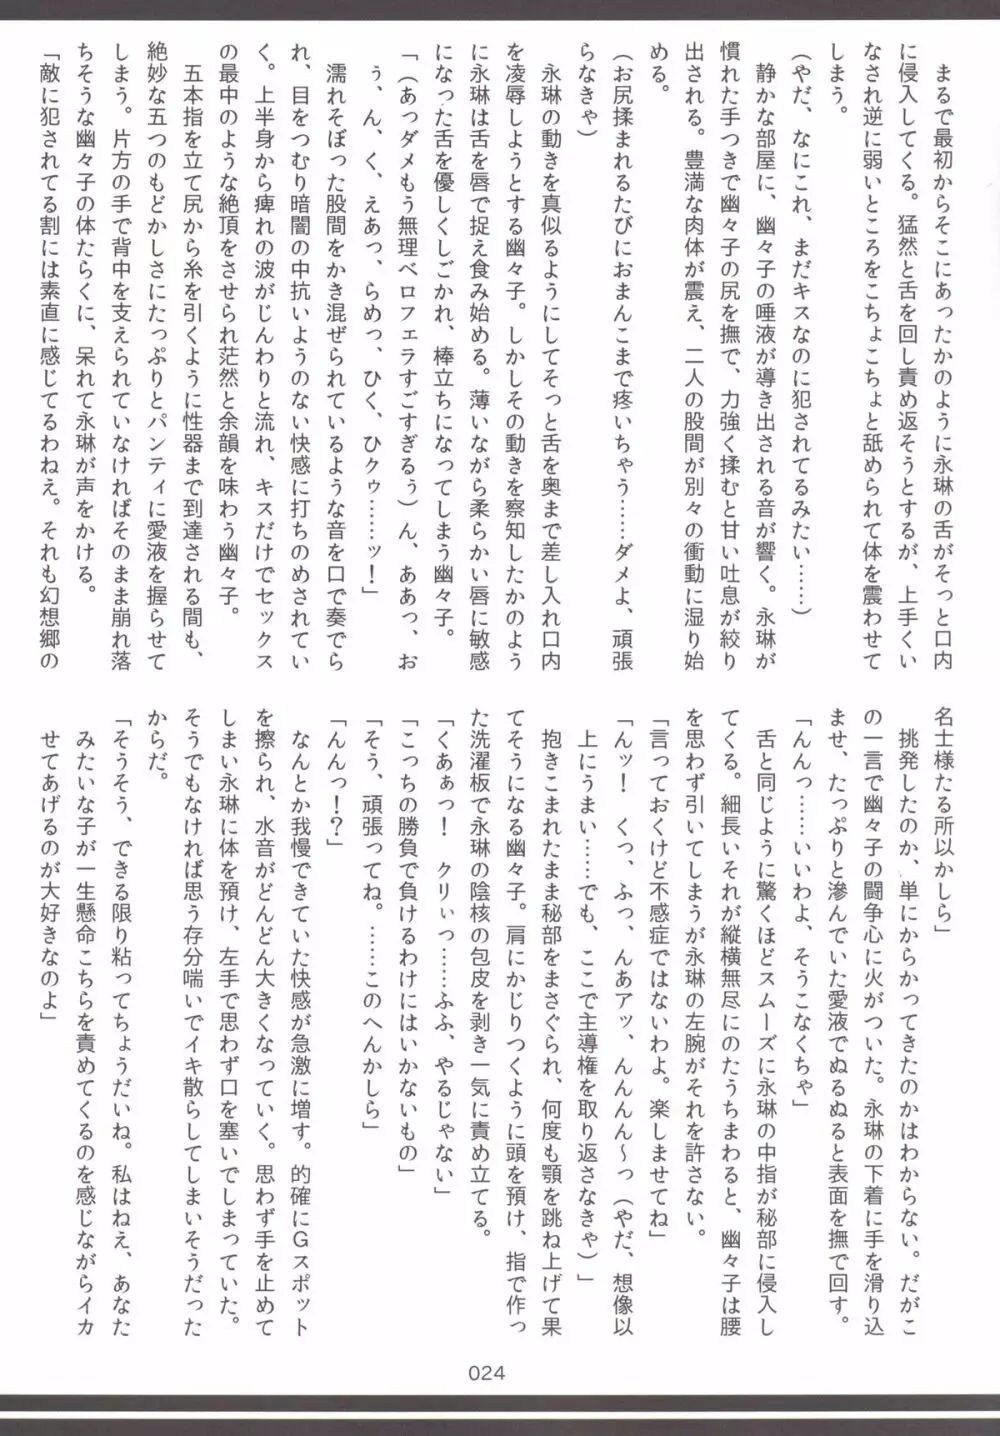 まるで最初からそこにあったかのように永琳の舌がそっと口内
に侵入してくる。猛然と舌を回し責め返そうとするが、上手くい
なされ逆に弱いところをこちょこちょと舐められて体を震わせて
しまう。
(やだ、なにこれ、まだキスなのに犯されてるみたい……)
静かな部屋に、幽々子の唾液が導き出される音が響く。永琳が
慣れた手つきで幽々子の尻を撫で、力強く揉むと甘い吐息が絞り
出される。豊満な肉体が震え、二人の股間が別々の衝動に湿り始
める。
(お尻揉まれるたびにおまんこまで疼いちゃう……ダメよ、頑張
らなきゃ)
永琳の動きを真似るようにしてそっと舌を奥まで差し入れ口内
を凌辱しようとする幽々子。しかしその動きを察知したかのよう
に永琳は舌を唇で捉え食み始める。薄いながら柔らかい唇に敏感
になった舌を優しくしごかれ、棒立ちになってしまう幽々子。
「(あっダメもう無理ベロフェラすごすぎるぅ)ん、ああっ、お
ぅ、ん、く、えあっ、らめっ、ひく、ひクゥ……ッ!」
濡れそぼった股間をかき混ぜられているような音を口で奏でら
れ、目をつむり暗闇の中抗いようのない快感に打ちのめされてい
く。上半身から痺れの波がじんわりと流れ、キスだけでセックス
の最中のような絶頂をさせられ茫然と余韻を味わう幽々子。
五本指を立て尻から糸を引くように性器まで到達される間も、
絶妙な五つのもどかしさにたっぷりとパンティに愛液を握らせて
しまう。片方の手で背中を支えられていなければそのまま崩れ落
ちそうな幽々子の体たらくに、呆れて永琳が声をかける。
「敵に犯されてる割には素直に感じてるわねえ。それも幻想郷の
名士様たる所以かしら」
挑発したのか、単にからかってきたのかはわからない。だがこ
の一言で幽々子の闘争心に火がついた。永琳の下着に手を滑り込
ませ、たっぷりと滲んでいた愛液でぬるぬると表面を撫で回す。
「んんっ……いいわよ、そうこなくちゃ」
舌と同じように驚くほどスムーズに永琳の中指が秘部に侵入し
てくる。細長いそれが縦横無尽にのたうちまわると、幽々子は腰
を思わず引いてしまうが永琳の左腕がそれを許さない。
「言っておくけど不感症ではないわよ。楽しませてね」
「んッ! くっ、ふっ、んあアッ、んんんん〜っ(やだ、想像以
上にうまい……でも、ここで主導権を取り返さなきゃ)」
抱きこまれたまま秘部をまさぐられ、何度も顎を跳ね上げて果
てそうになる幽々子。肩にかじりつくように頭を預け、指で作っ
た洗濯板で永琳の陰核の包皮を剥き一気に責め立てる。
「くあぁっ! クリぃっ……ふふ、やるじゃない」
「こっちの勝負で負けるわけにはいかないもの」
「そう、頑張ってね。……このへんかしら」
「んんっ!?」
なんとか我慢できていた快感が急激に増す。的確にGスポット
を擦られ、水音がどんどん大きくなっていく。思わず手を止めて
しまい永琳に体を預け、左手で思わず口を塞いでしまっていた。
そうでもなければ思う存分喘いでイキ散らしてしまいそうだった
からだ。
「そうそう、できる限り粘ってちょうだいね。私はねえ、あなた
みたいな子が一生懸命こちらを責めてくるのを感じながらイカ
せてあげるのが大好きなのよ」
024